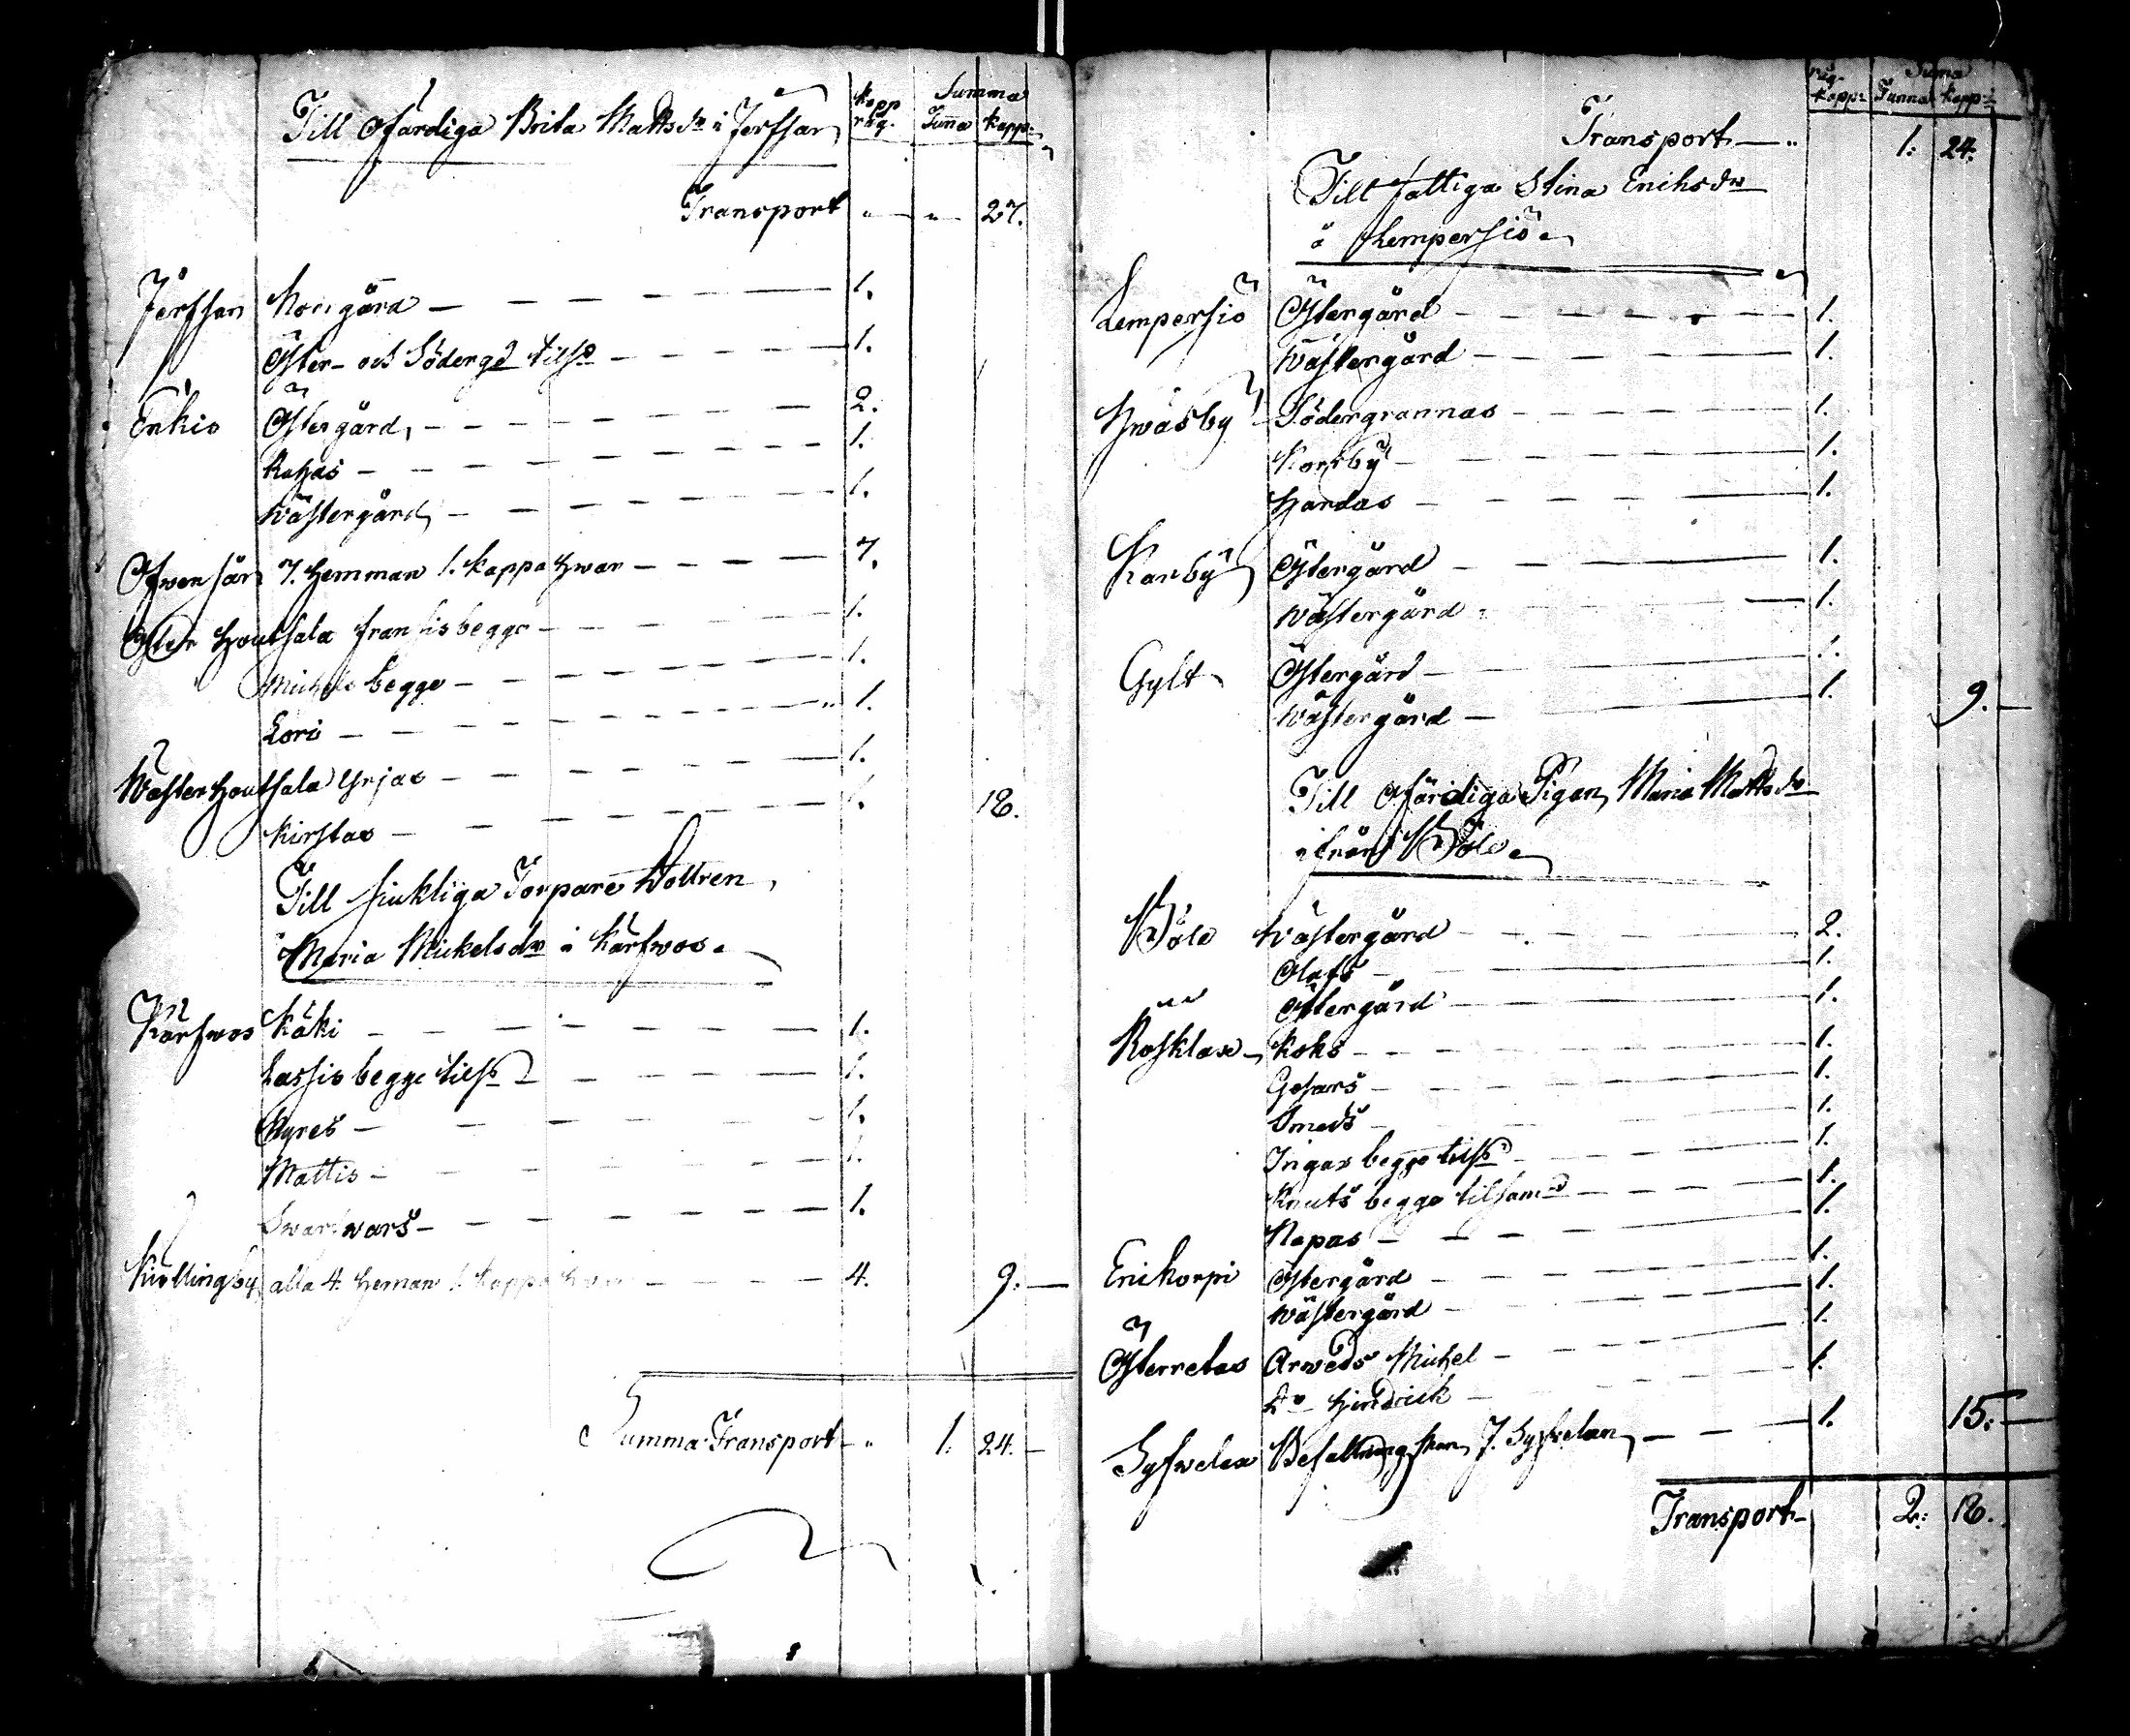 Kapp råg. Summa Tunna Kapp:
Till ofärdiga Brita Mattsdr i Jerfsar
Transport " " 27.
Jerfsar Norrgård 1.
Öster- och Södergd tilsd 1.
Enkis Östergård 2.
Kahas 1.
Västergård 1.
Ofwensår 7. Hemman 1. Kappa hwar 7.
Öster Houtsala Fransis begge 1.
Michels begge 1.
Lori 1.
Wäster Houtsala Yrjas 1.
Kirstas 1. 18.
Till siukliga Torpare Dottren
Maria Mickelsdr i Kärfwos
Kärfwos Käki 1.
Lassis begge tilsd 1.
Kyres 1.
Mattis 1.
Swartwars 1.
Kivllingby alla 4. Heman 1. Kappa hwar 4. 9.
Summa Transport " 1. 24.
råg. Kapp: Suma Tunna Kapp:
Transport " 1. 24.
Till fattiga Stina Eriksdr
å Lempersiö
Lempersiö Östergård 1.
Västergård 1.
Hwäsby Södergrannas 1.
Korrby 1.
Handas 1.
Karby Östergård 1.
Västergård 1.
Gylt Östergård 1.
Västergård 1. 9.
Till ofärdiga Pigan Maria Mattsdr
ifrån Böle
Böle Västergård 2.
Olafs 1.
Östergård 1.
Råsklax Koks 1.
Gosars 1.
Smeds 1.
Ingas begge tilsd 1.
Knuts begge tilsamd 1.
Napas 1.
Erikorpi Östergård 1.
Västergård 1.
Österretas Arweds Mickel 1.
Do Hindrick 1.
Syfwelax Befallningsman J. Syfvelan 1. 15.
Transport 2. 18.